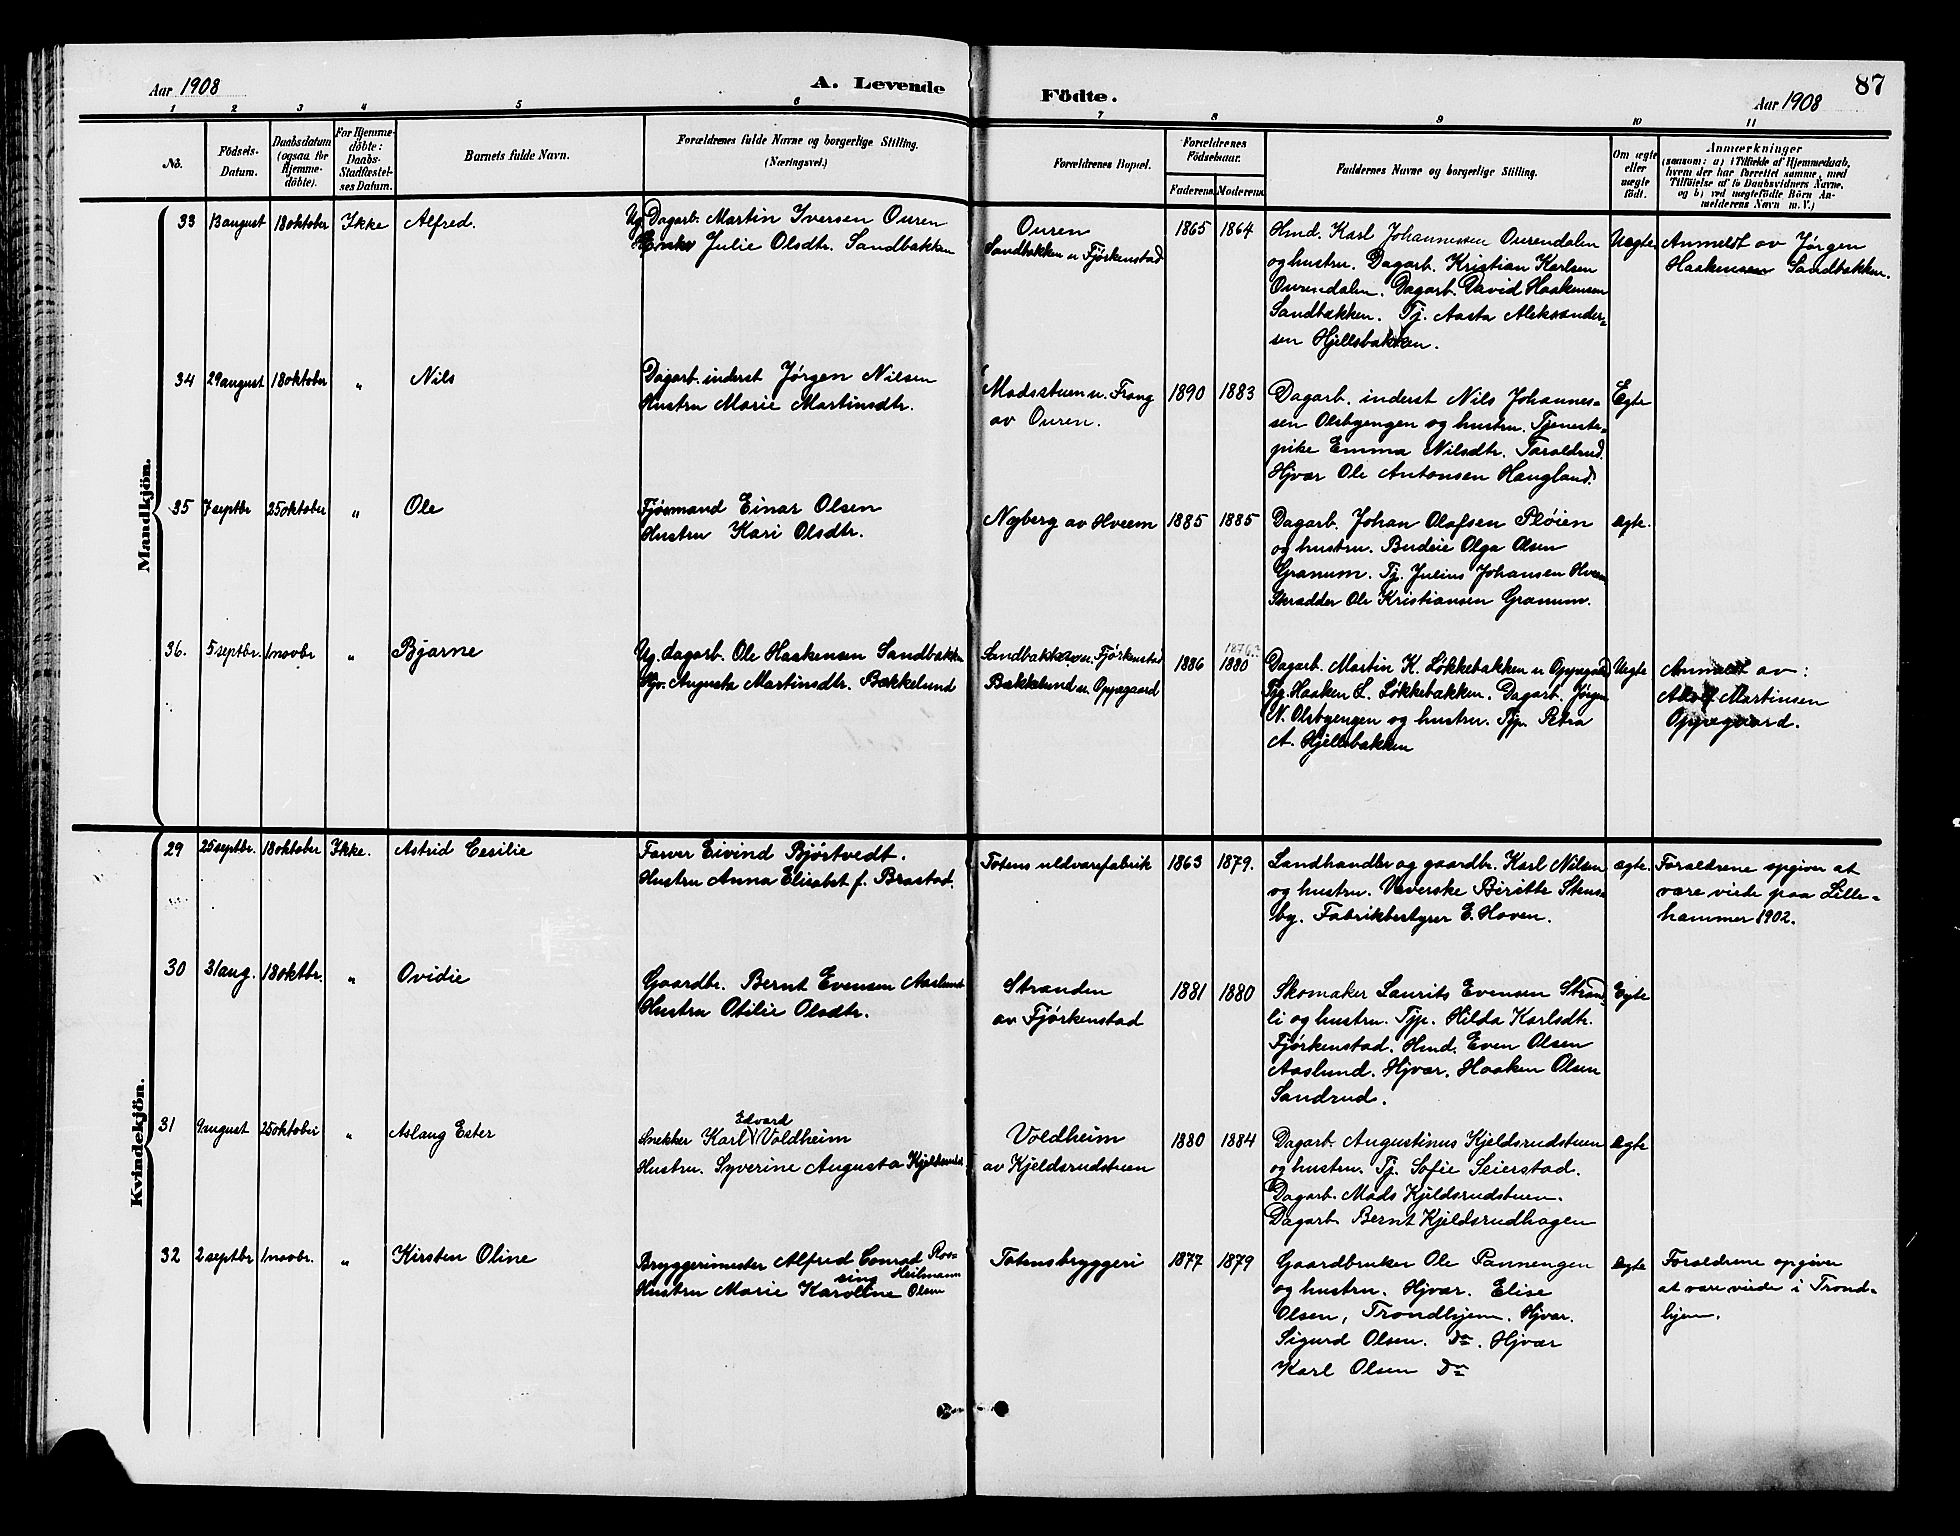 87
Aar 1908
A. Levende
Födte.
Aar 1908
1 2 3 4 5 6 7 8 9 10 11
No.
Födsels-
Datum.
Daabsdatum
(ogsaa for
Hjemme-
döbte).
For Hjemme-
döbte:
Daabs-
Stadfæstel-
ses Datum.
Barnets fulde Navn.
Forældrenes fulde Navne og borgerlige Stilling.
(Næringsvei.)
Forældrenes Bopæl.
Forældrenes
Födselsaar.
Faderens. Moderens.
Faddernes Navne og borgerlige Stilling.
Om ægte
eller
uægte
födt.
Anmærkninger
(saasom: a) i Tilfælde af Hjemmedaab,
hvem der har forrettet samme, med
Tilföielse af to Daabsvidners Navne,
og b) ved uægtefödte Börn An-
melderens Navn m. V.)
Mandkjön.
33 13 august 18 oktober Ikke Alfred.
Ug. Dagarb. Martin Iversen Ouren
Enke Julie Olsdtr. Sandbakken
Ouren
Sandbakken u. Fjørkenstad
1865 1864
Hmd. Karl Johannessen Ourendalen
og hustru. Dagarb. Kristian Karlsen
Ourendalen. Dagarb. David Haakensen
Sandbakken. Tj. Aasta Aleksander-
sen Hjellsbakken.
Uegte
Anmeldt av Jørgen
Haakensen Sandbakken.
34 29 august 18 oktober " Nils
Dagarb. inderst Jørgen Nilsen
Hustru Marie Martinsdtr.
Madsstuen u. Frang
av Ouren.
1890 1883
Dagarb. inderst Nils Johannes-
sen Olsbyengen og hustru. Tjeneste-
pike Emma Nilsdtr. Taraldrud.
Hjvær Ole Antonsen Haugland.
Egte
35 7 septbr 25 oktober " Ole
Fjøsmand Einar Olsen
Hustru Kari Olsdtr.
Nyberg av Hveem
1885 1885
Dagarb. Johan Olafsen Pløien
og hustru. Budeie Olga Olsen
Granum. Tj. Julius Johansen Hveem
Skrædder Ole Kristiansen Granum.
ægte.
36. 5 septbr. 1 novbr " Bjarne
Ug. dagarb. Ole Haakensen Sandbakken
Augusta Martinsdtr. Bækkelund
Sandbakken u. Fjørkenstad
Bækkelund u. Oppegaard
1886 1880
Dagarb. Martin K. Løkkebakken u. Oppegaard
Tjg. Haaken L. Løkkebakken. Dagarb. Jørgen
N. Olsbyengen og hustru. Tjp. Petra
A. Hjellsbakken
Uegte
Anmeldt av:
Martinsen
Oppegaard.
Kvindekjön.
29 25 septbr. 18 oktober Ikke. Astrid Cesilie
Farver Eivind Bjørtvedt.
Hustru Anna Elisabet f. Brastad.
Totens uldvarefabrik
1863 1879.
Landhandler og gaardbr. Karl Nilsen
og hustru. Væverske Beritte Stens-
by. Fabrikbestyrer E. Hoven.
ægte.
Forældrene opgiver at
være viede paa Lille-
hammer 1902.
30 31 aug. 18 oktbr. " Ovidie
Gaardbr. Bernt Evensen Aaslund
Hustru Otilie Olsdtr.
Stranden
av Fjørkenstad
1881 1880
Skomaker Laurits Evensen Strand-
li og hustru. Tjp. Hilda Karlsdtr.
Fjørkenstad. Hmd. Even Olsen
Aaslund. Hjvær. Haaken Olsen
Sandrud.
Egte
31 9 august 25 oktober " Aslaug Ester
Edvard
Snekker Karl Voldheim
Hustru. Syverine Augusta Kjeldsrud
Voldheim
av Kjeldsrudstuen
1880 1884
Dagarb. Augustinus Kjeldsrudstuen
og hustru. Tj. Sofie Seierstad.
Dagarb. Mads Kjeldsrudstuen.
Dagarb. Bernt Kjeldsrudhagen
ægte
32 2 septbr 1 novbr. " Kirsten Oline
Bryggerimester Alfred Conrad Ros-
sing Heilmann
Hustru Marie Karoline Olsen
Totens bryggeri
1877 1879
Gaardbruker Ole Pannengen
og hustru. Hjvær. Elise
Olsen, Trondhjem. Hjvær.
Sigurd Olsen. Do. Hjvær
Karl Olsen Do
ægte
Forældrene opgiver
at være viede i Trond-
hjem.